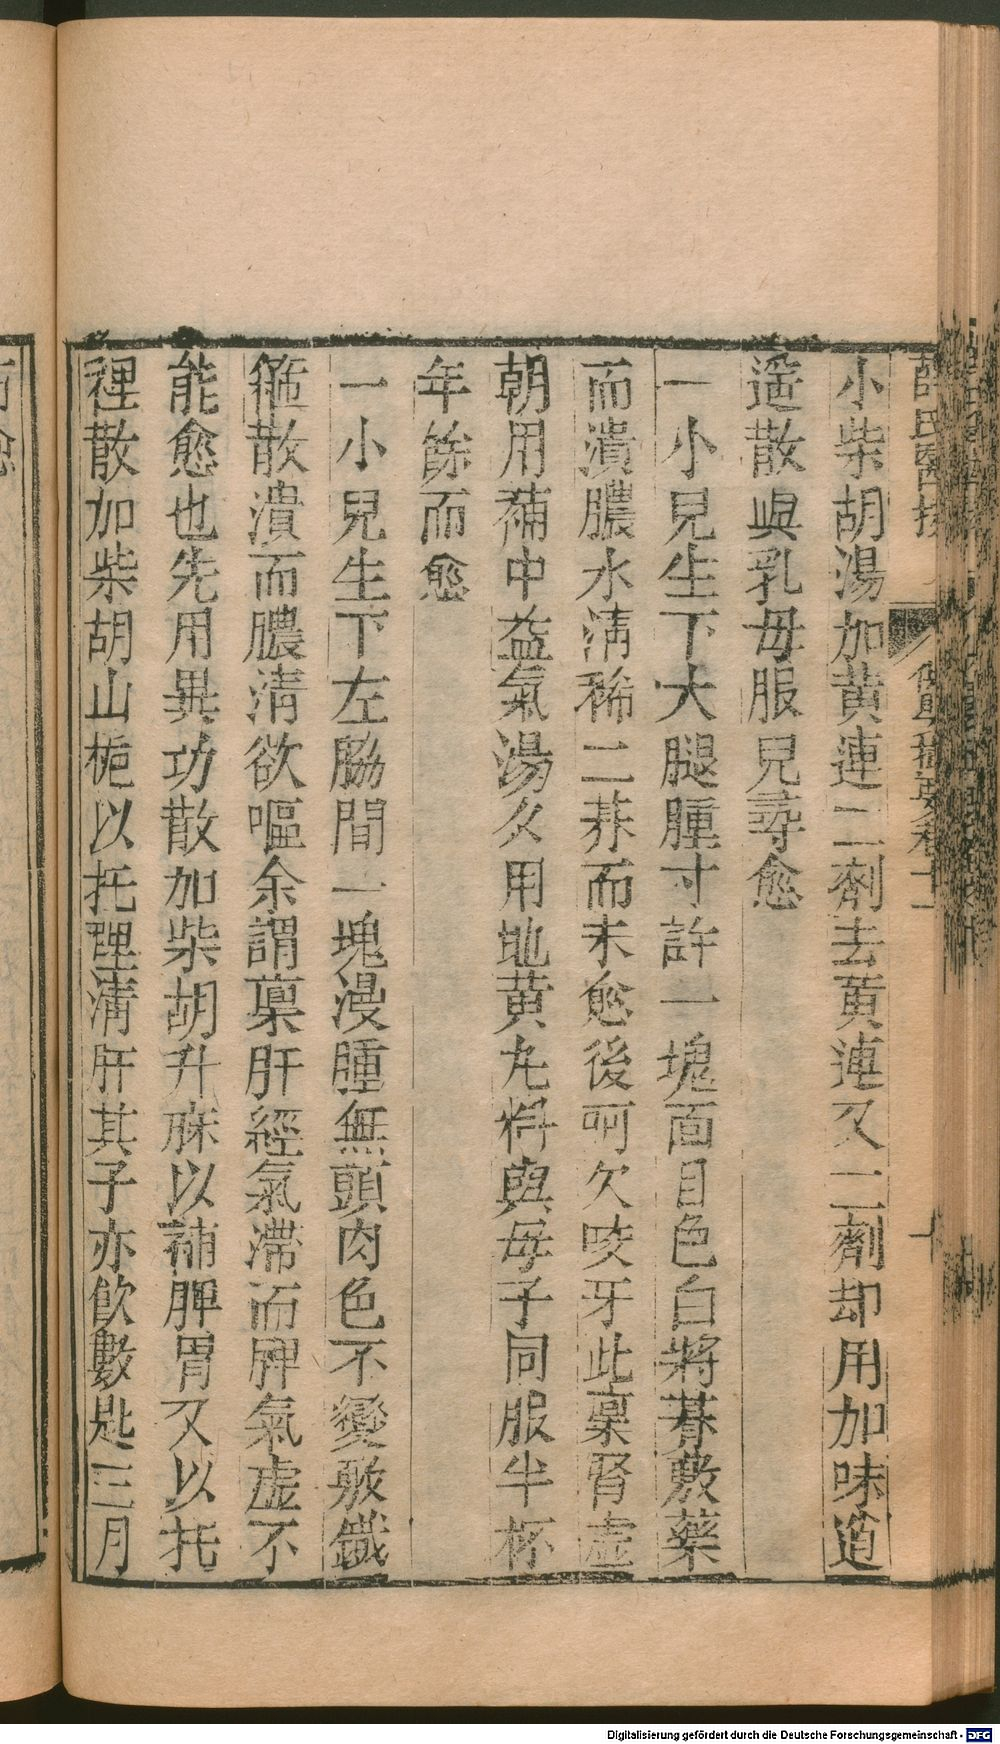 小柴胡湯加黄連二劑去黄連又二劑却用加味逍
遥散與乳母服兒尋愈
一小兒生下大腿腫寸許一塊面目色白將朞敷藥
而潰膿水清稀二朞而未愈後呵欠咬牙此稟腎虛
朝用補中益氣湯久用地黄丸料與母子同服半杯
年餘而愈
一小兒生下左脇間一塊漫腫無頭肉色不變敷鐵
箍散潰而膿清欲嘔余謂稟肝經氣滯而脾氣虛不
能愈也先用異功散加柴胡升麻以補脾胃又以托
裡散加柴胡山梔以托裡清肝其子亦飲數匙三月
Digitalisierung gefördert durch die Deutsche Forschungsgemeinschaft - DFG